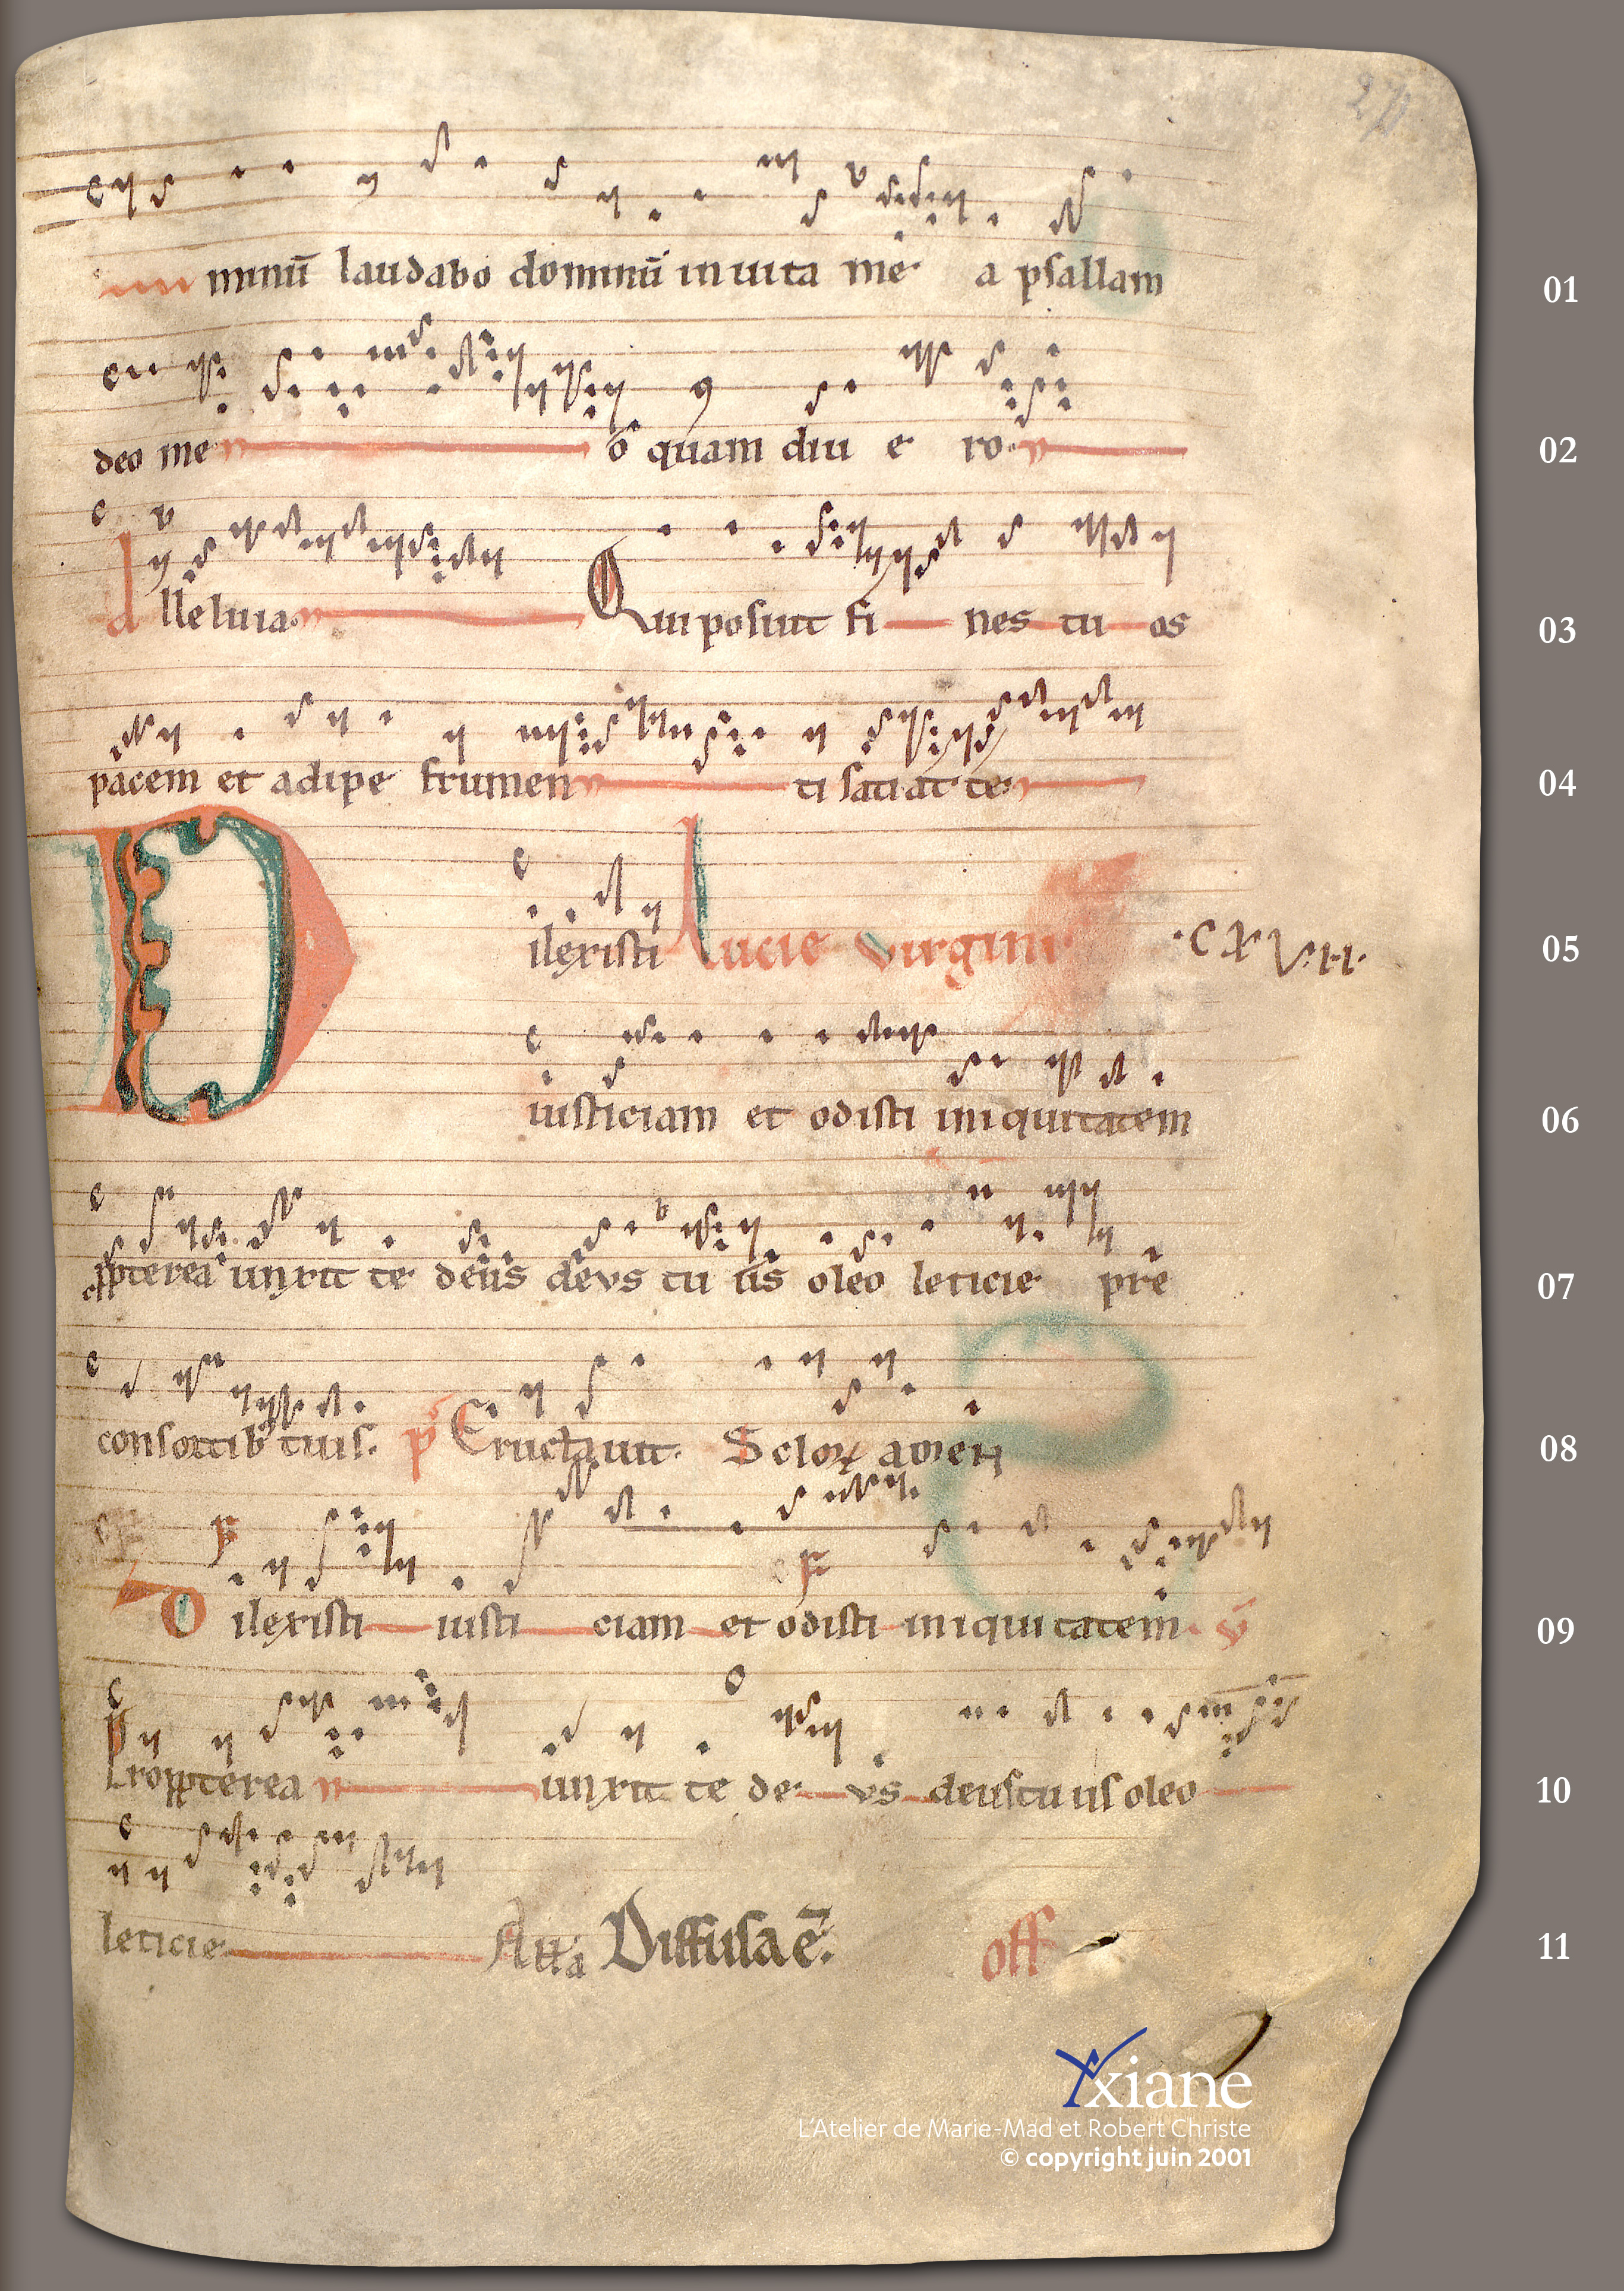 minū laudabo dominū in uita me a psallam 01
deo me o quam diu e ro 02
Alleluia Qui posuit fi nes tu os 03
pacem et adipe frumen ti satiat te 04
D ilexisti Lucie virgini .C XVII. 05
iusticiam et odisti iniquitatem 06
ꝓpterea unxit te deus deus tu us oleo leticie pre 07
consortib tuis. p̄ Eructauit. Seloꝝ amen 08
Dilexisti iusti ciam et odisti iniquitatem. v̄ 09
Propterea unxit te de us deus tuus oleo 10
leticie Alla Diffusa ē. off 11
Yxiane
L'Atelier de Marie-Mad et Robert Christe
© copyright juin 2001